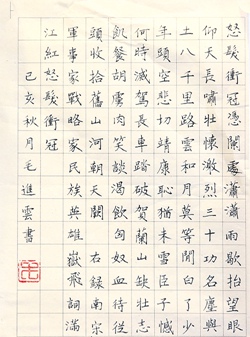 怒髮衝冠憑闌處瀟瀟雨歇抬望眼
仰天長嘯壯懷激烈三十功名塵與
土八千里路雲和月莫等閒白了少
年頭空悲切靖康恥猶未雪臣子憾
何時滅駕長車踏破賀蘭山缺壯志
飢餐胡虜肉笑談渴飲匈奴血待從
頭收拾舊山河朝天闕 右錄南宋
軍事家戰略家民族英雄嶽飛詞滿
江紅怒髮衝冠
己亥秋月毛進雲書